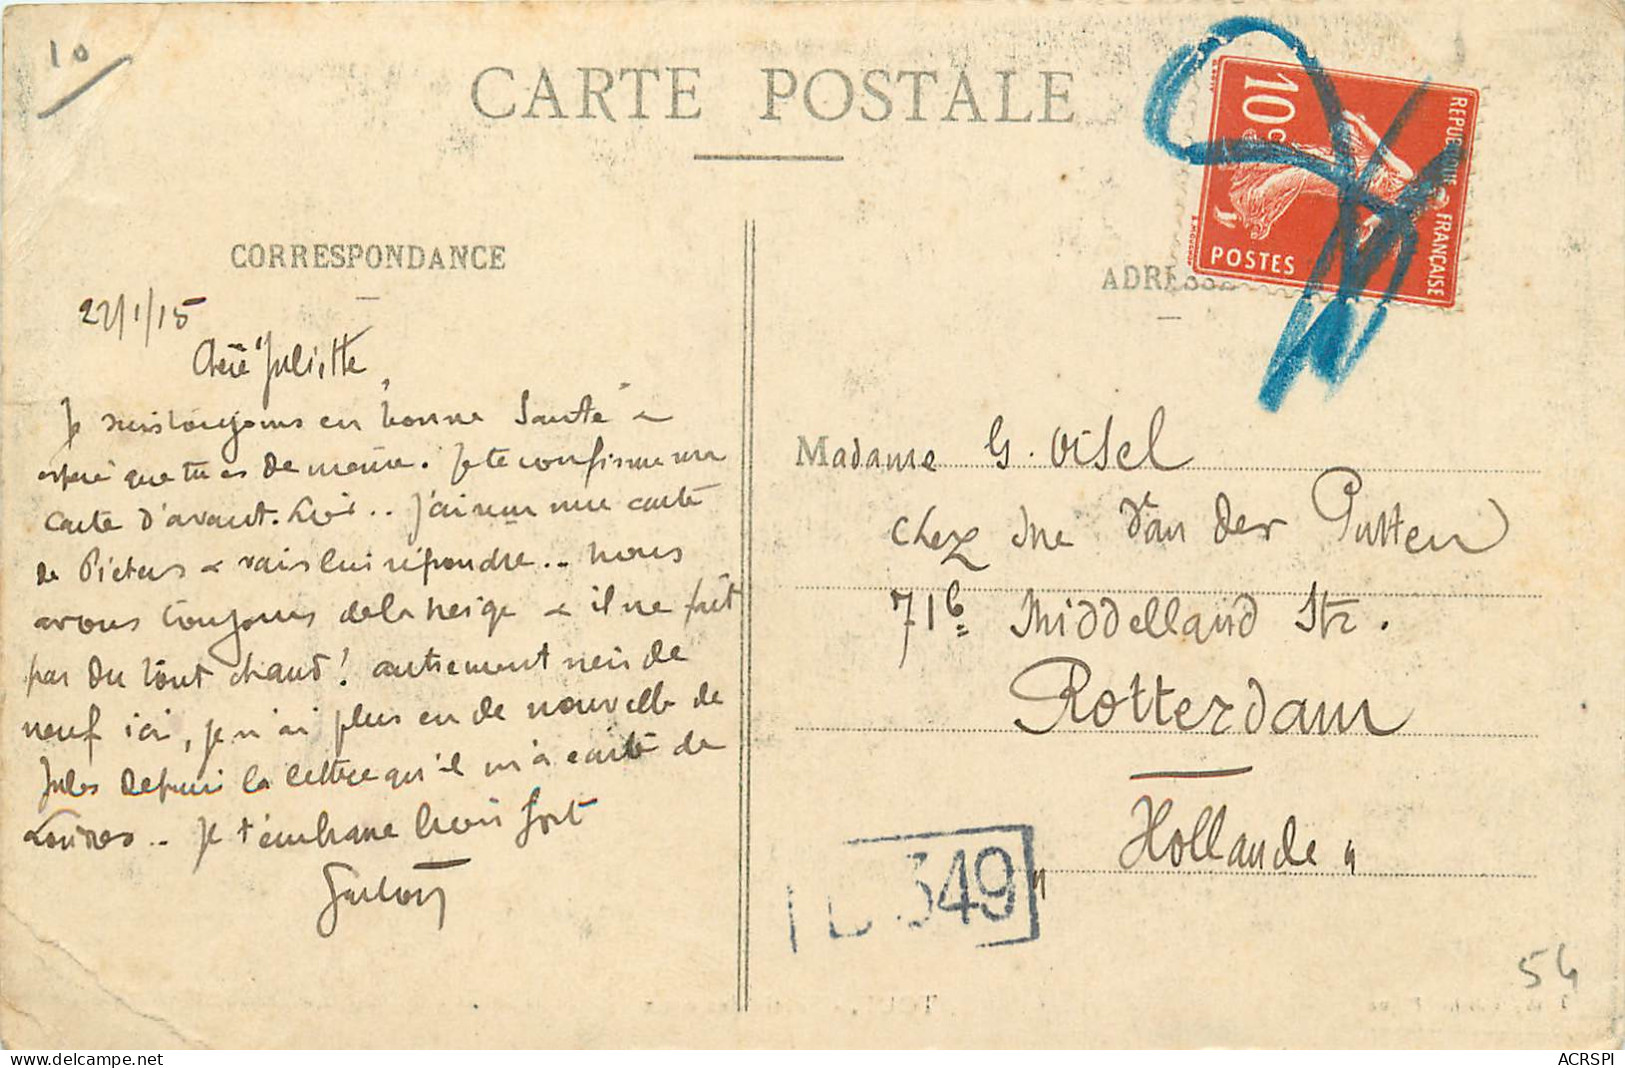 10
CARTE POSTALE
10c
REPUBLIQUE FRANÇAISE
POSTES
CORRESPONDANCE
ADRESSE
22/1/15
Chère Juliette,
Je suis toujours en bonne santé &
espère que tu es de même. Je te confirme ma
carte d'avant-hier.. J'ai reçu une carte
de Pieters & vais lui répondre.. nous
avons toujours de la neige & il ne fait
pas du tout chaud! autrement rien de
neuf ici, je n'ai plus eu de nouvelle de
Jules depuis la lettre qu'il m'a écrite de
Londres.. Je t'embrasse bien fort
Gaston
Madame G. Visel
chez Me Van der Putten
71b Middelland Str.
Rotterdam
Hollande
349
54
ACRSPI